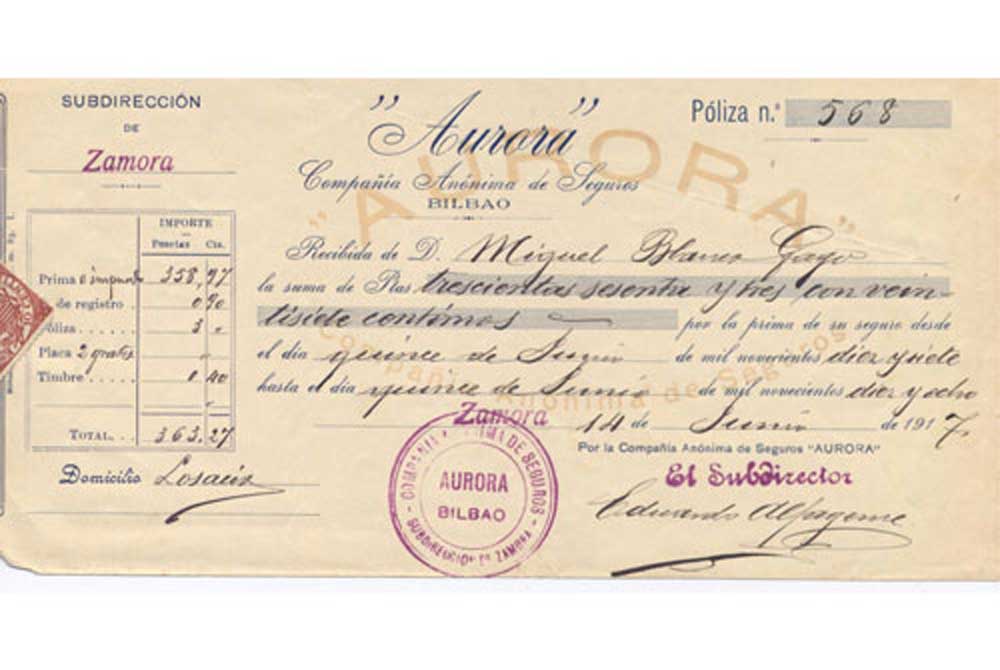 SUBDIRECCIÓN
DE
Zamora
"Aurora"
Compañía Anónima de Seguros
BILBAO
Póliza n.º 568
"AURORA"
Compañía Anónima de Seguros
IMPORTE
Pesetas Cts.
Prima é impuesto 358,97
de registro 0 90
óliza 3 "
Placa 2 gratis "
Timbre 0.40
"
TOTAL 363.27
Domicilio Losacio
Recibida de D. Miguel Blanco Gago
la suma de Ptas trescientas sesenta y tres con vein-
tisiete centimos por la prima de su seguro desde
el día quince de Junio de mil novecientos diez y siete
hasta el día quince de Junio de mil novecientos diez y ocho
Zamora 14 de Junio de 1917
Por la Compañía Anónima de Seguros "AURORA"
El Subdirector
Eduardo Alfageme
COMPAÑIA ANONIMA DE SEGUROS
AURORA
BILBAO
SUBDIRECCION DE ZAMORA